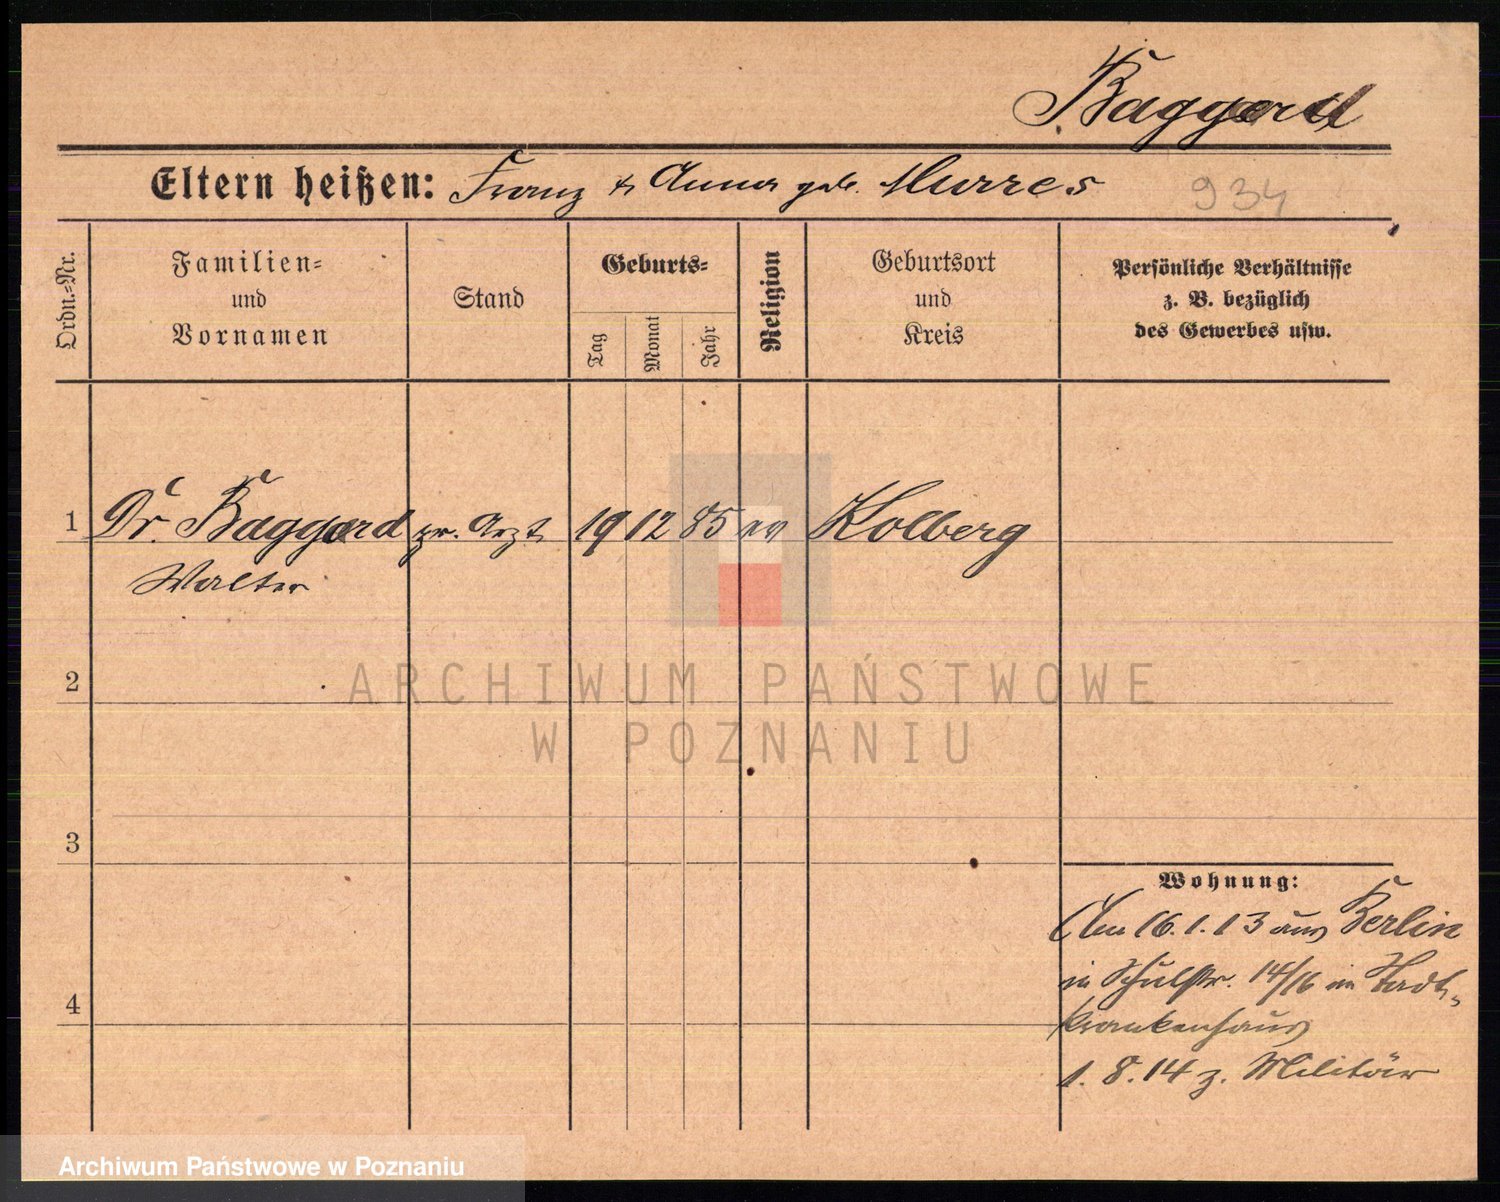 Baggerd
Eltern heißen: Franz & Anna geb. Murres
934
Ordn.-Nr.
Familien-
und
Vornamen
Stand
Geburts-
Tag
Monat
Jahr
Religion
Geburtsort
und
Kreis
Persönliche Verhältnisse
z. B. bezüglich
des Gewerbes usw.
1 Dr. Baggerd pr. Arzt 19 12 85 ev Kolberg
Walter
2
ARCHIWUM PAŃSTWOWE
W POZNANIU
3
Wohnung:
Am 16.1.13 aus Berlin
in Schulstr. 14/16 im Stadt-
krankenhaus
4
1.8.14 z. Militär
Archiwum Państwowe w Poznaniu